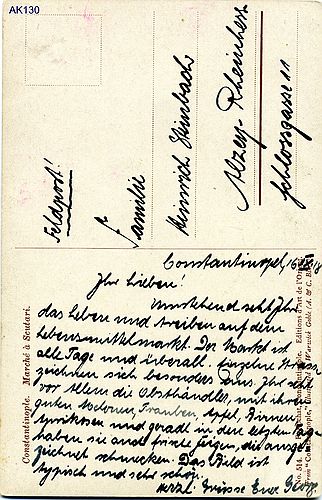 AK130
Feldpost!
Familie
Heinrich Steinbach
Alzey-Rheinhess
Schlossgasse 11
Constantinopel, 16
Ihr Lieben!
Umstehend seht Ihr
das Leben und treiben auf dem
Lebensmittelmarkt. Der Markt ist
alle Tage und überall. Einzelne
zeichnen sich besonders aus. Ihr seht
vor allem die Obsthändler, mit ihren
guten Trauben, Äpfel, Birnen,
Aprikosen und gerade in der letzten
haben sie auch frische Feigen, die ausge
zeichnet schmecken. Das Bild ist
typisch und sehr schön.
herzl. Grüsse Euer Georg
Constantinople. Marché à Scutari.
Editions d'Art de l'Orient